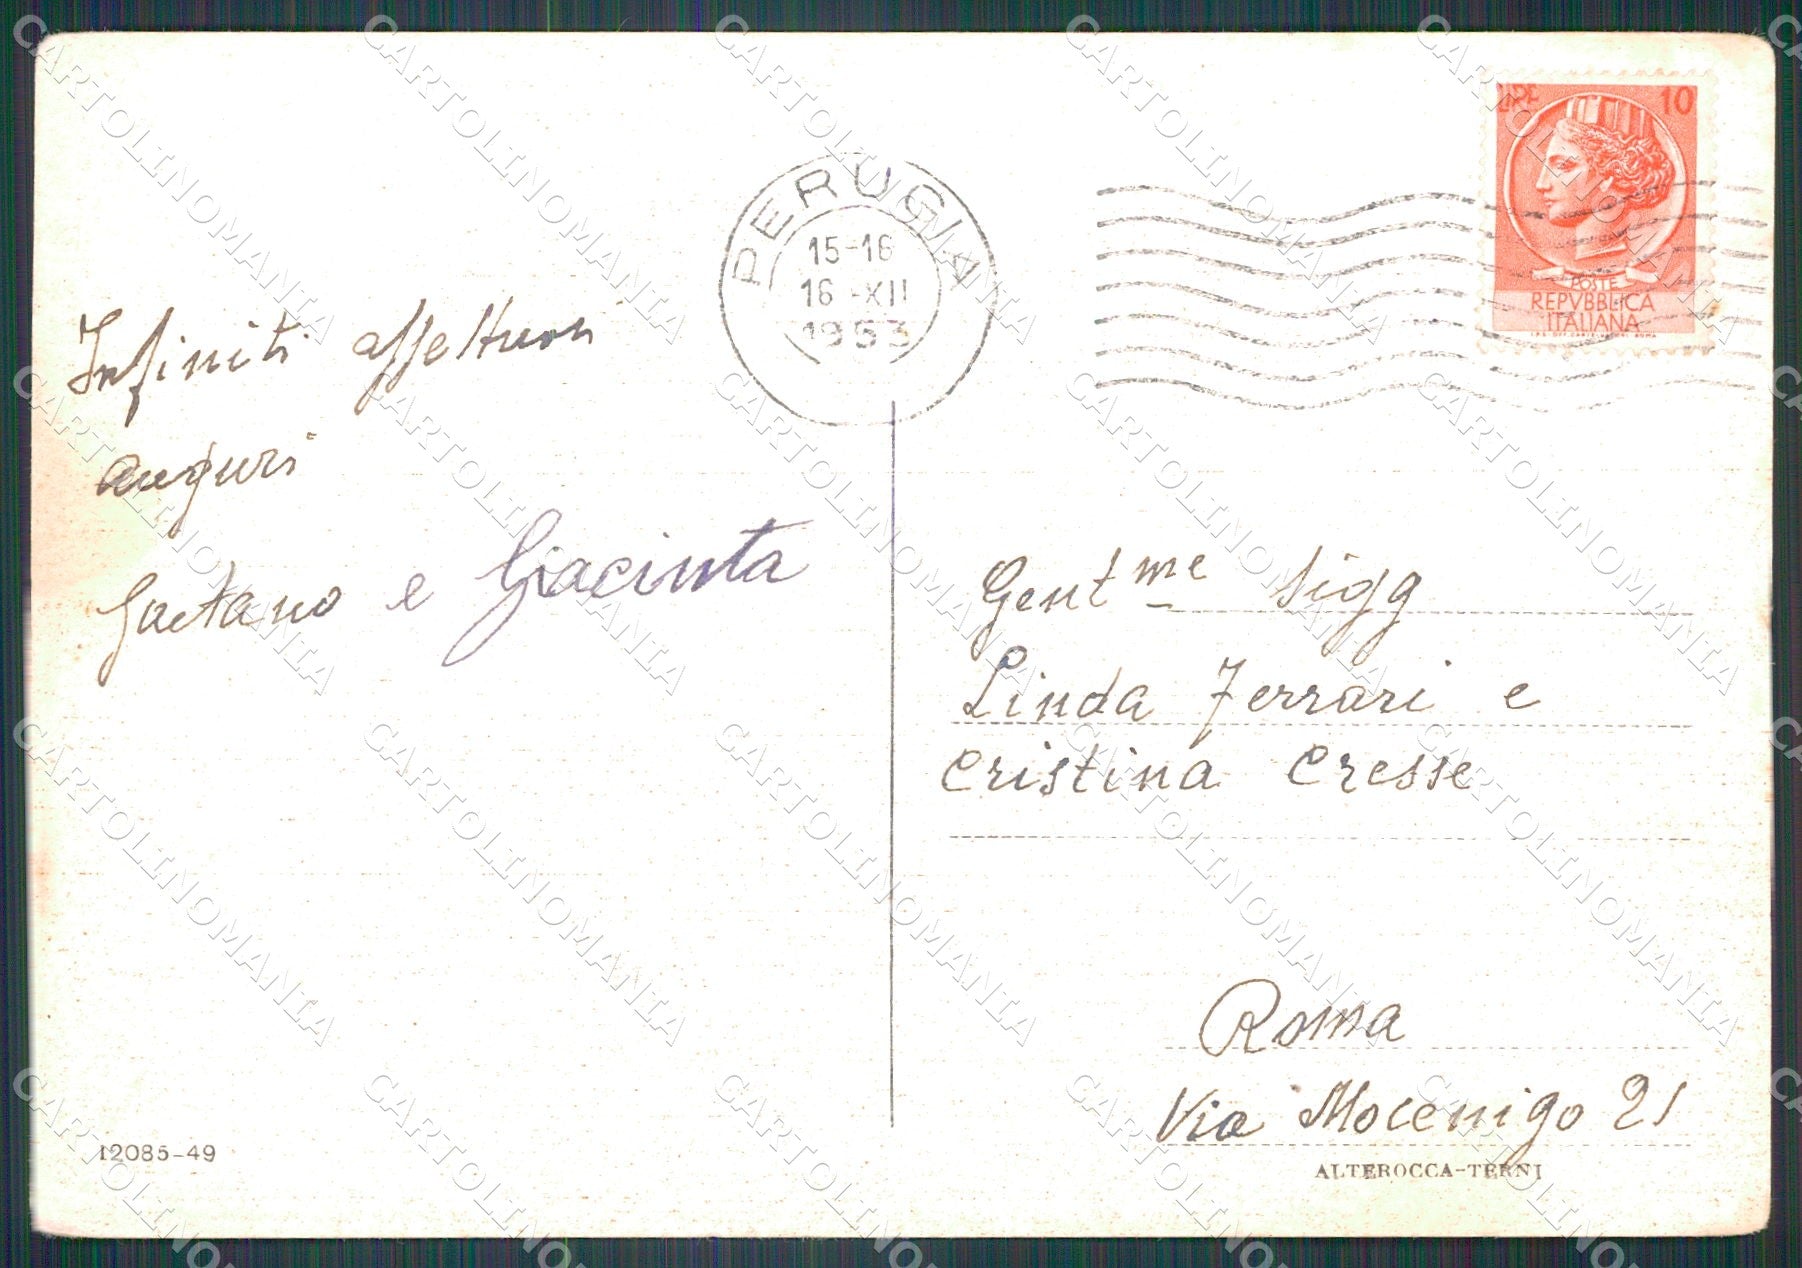 LIRE 10
POSTE
REPVBBLICA
ITALIANA
PERUGIA
15-16
16-XII
1953
Infiniti affettuosi
auguri
Gaetano e Giacinta
Gent.me Sigg
Linda Ferrari e
Cristina Cresse
Roma
Via Mocenigo 21
12085-49
ALTEROCCA-TERNI
CARTOLINOMANIA